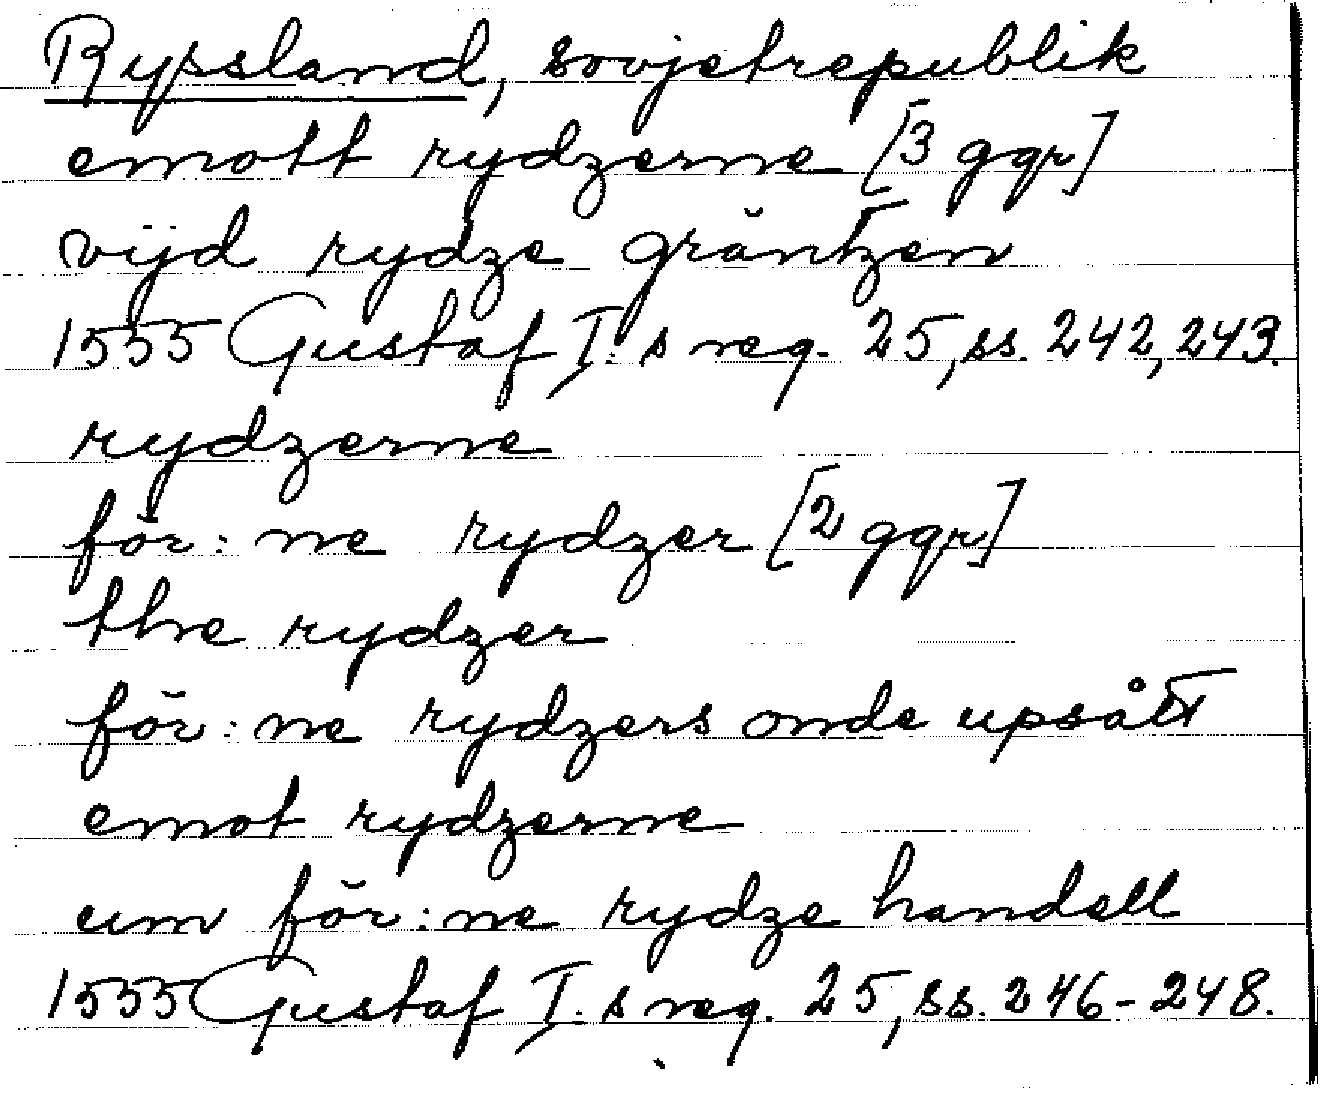 Ryssland, sovjetrepublik
emott rydzerne [3 ggr]
vijd rydze gräntzen
1555 Gustaf I:s reg. 25, ss. 242, 243.
rydzerne
för:ne rydzer [2 ggr]
the rydzer
för:ne rydzers onde upsått
emot rydzerne
um för:ne rydze handell
1555 Gustaf I:s reg. 25, ss. 246-248.